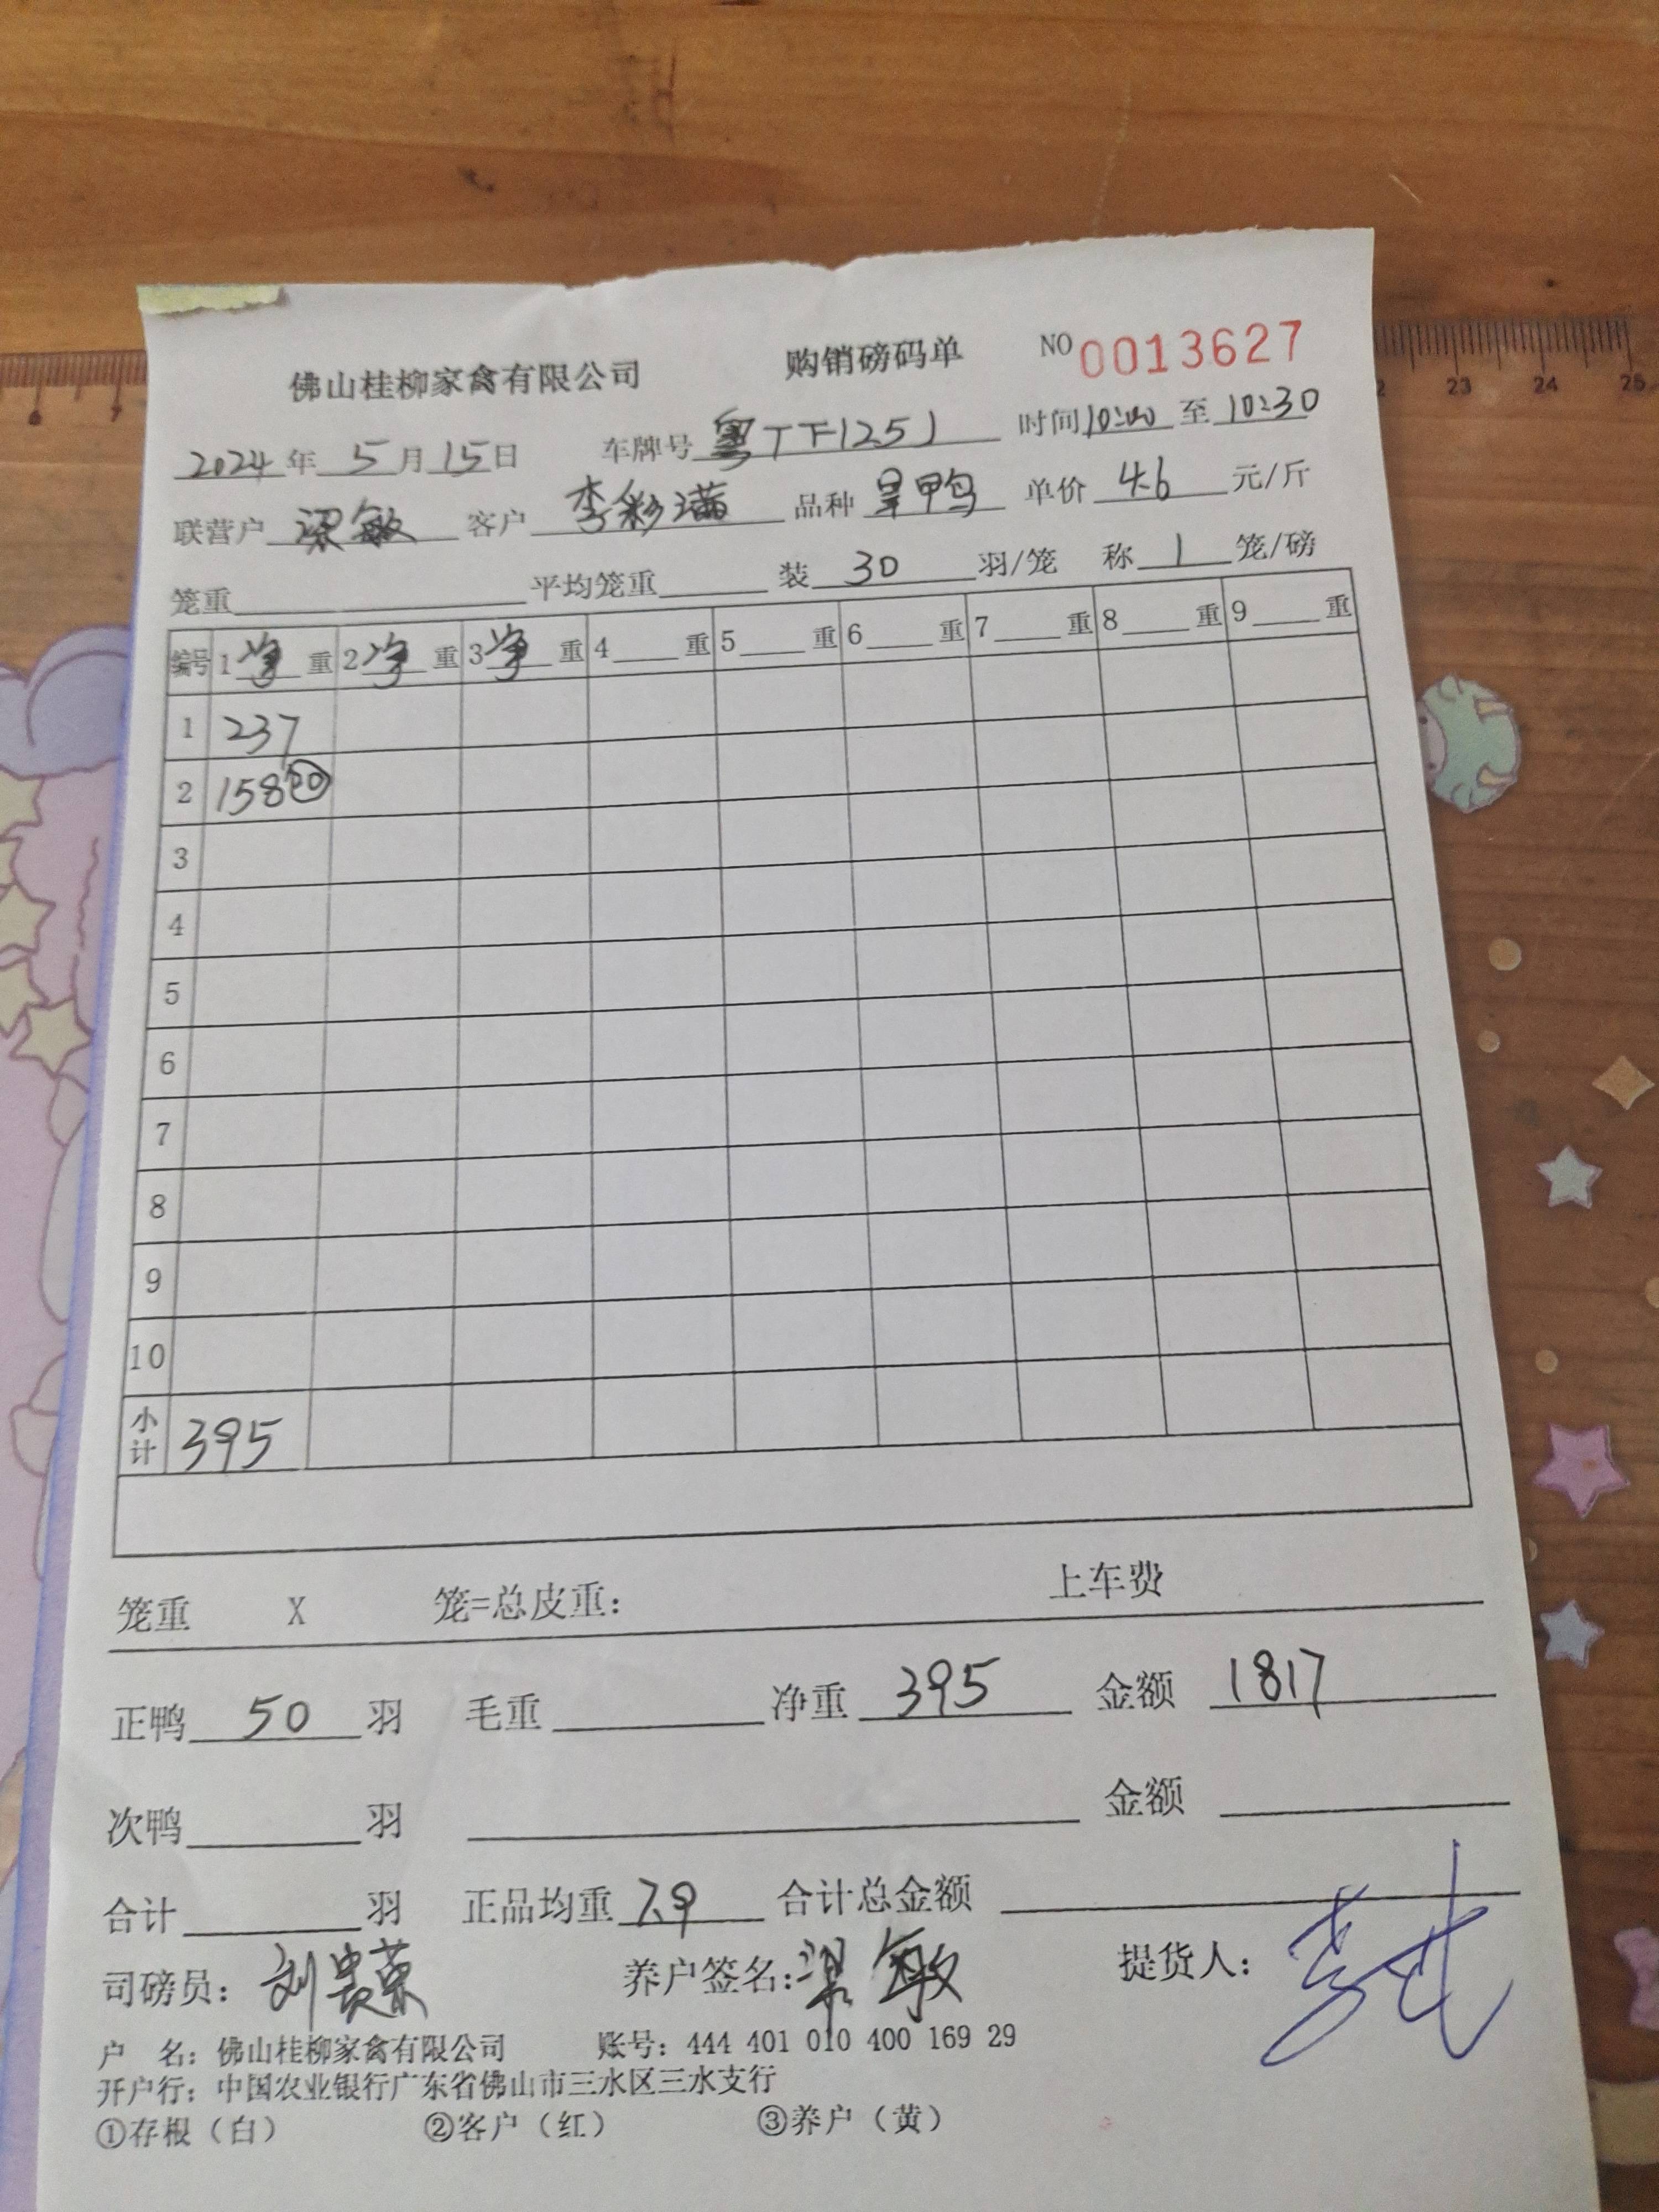 佛山桂柳家禽有限公司 购销磅码单 NO 0013627
2024年 5月15日 车牌号 粤TF1251 时间10:00至10:30
联营户 梁敏 客户 李彩满 品种 旱鸭 单价 4.6 元/斤
笼重 平均笼重 装 30 羽/笼 称 1 笼/磅
编号 1净重 2净重 3净重 4 重 5 重 6 重 7 重 8 重 9 重
1 237
2 158 20
3
4
5
6
7
8
9
10
小计 395
笼重 X 笼=总皮重: 上车费
正鸭 50 羽 毛重 净重 395 金额 1817
次鸭 羽 金额
合计 羽 正品均重 7.9 合计总金额
司磅员: 刘贵荣 养户签名: 梁敏 提货人:
户 名: 佛山桂柳家禽有限公司 账号: 444 401 010 400 169 29
开户行: 中国农业银行广东省佛山市三水区三水支行
①存根(白) ②客户(红) ③养户(黄)
6 7 22 23 24 25